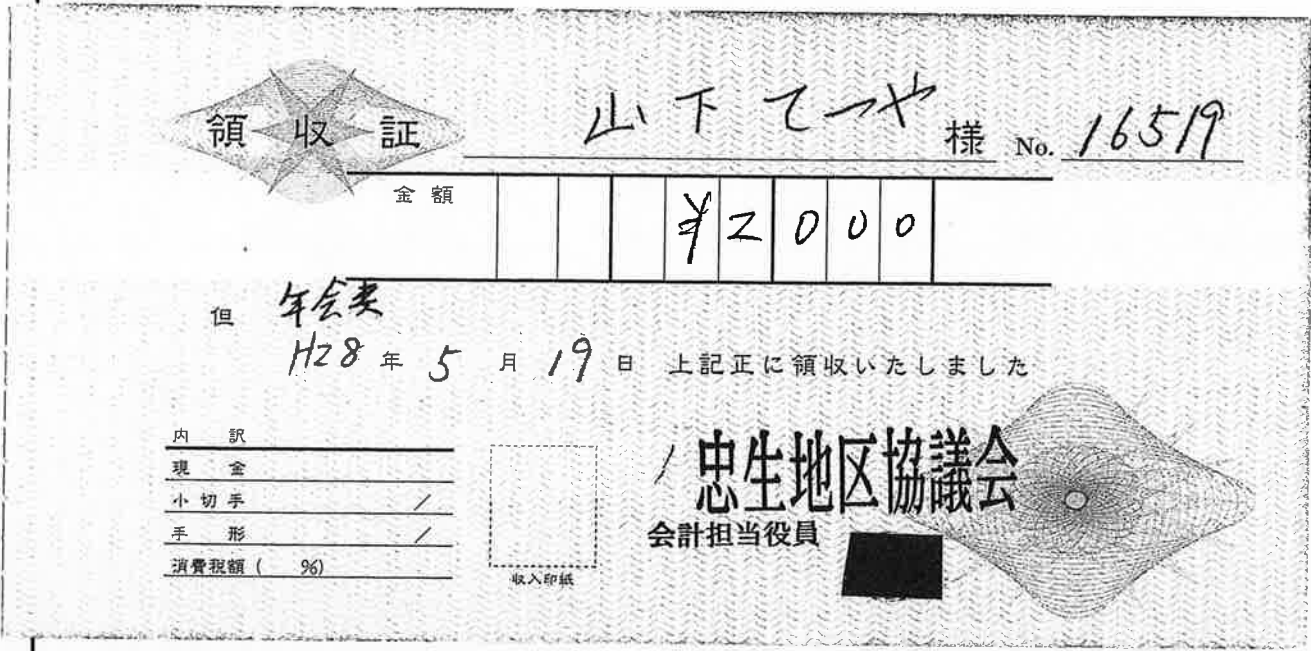 領収証 山下てつや 様 No. 16519
金額 ¥2000
但 年会費
H28年5月19日 上記正に領収いたしました
内訳
現金
小切手 /
手形 /
消費税額 ( %)
収入印紙
忠生地区協議会
会計担当役員